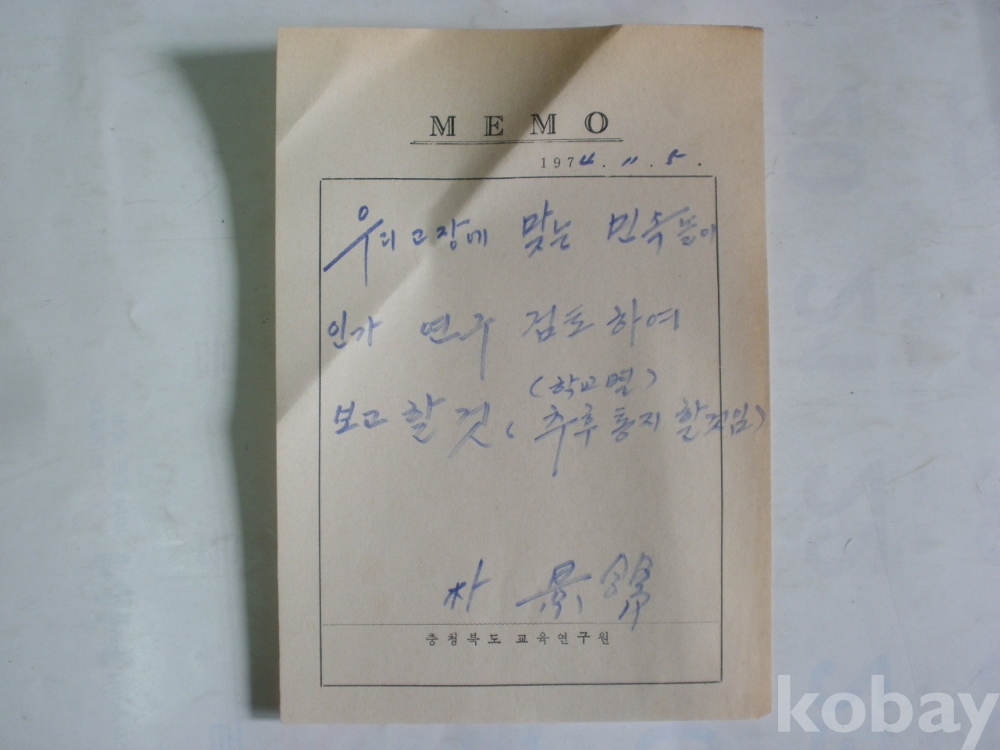 MEMO
1974. 11. 5.
우리 고장에 맞는 민속놀이
인가 연구 검토하여
(학교별)
보고 할 것 (추후 통지 할것임)
朴 景錫
충청북도 교육연구원
kobay